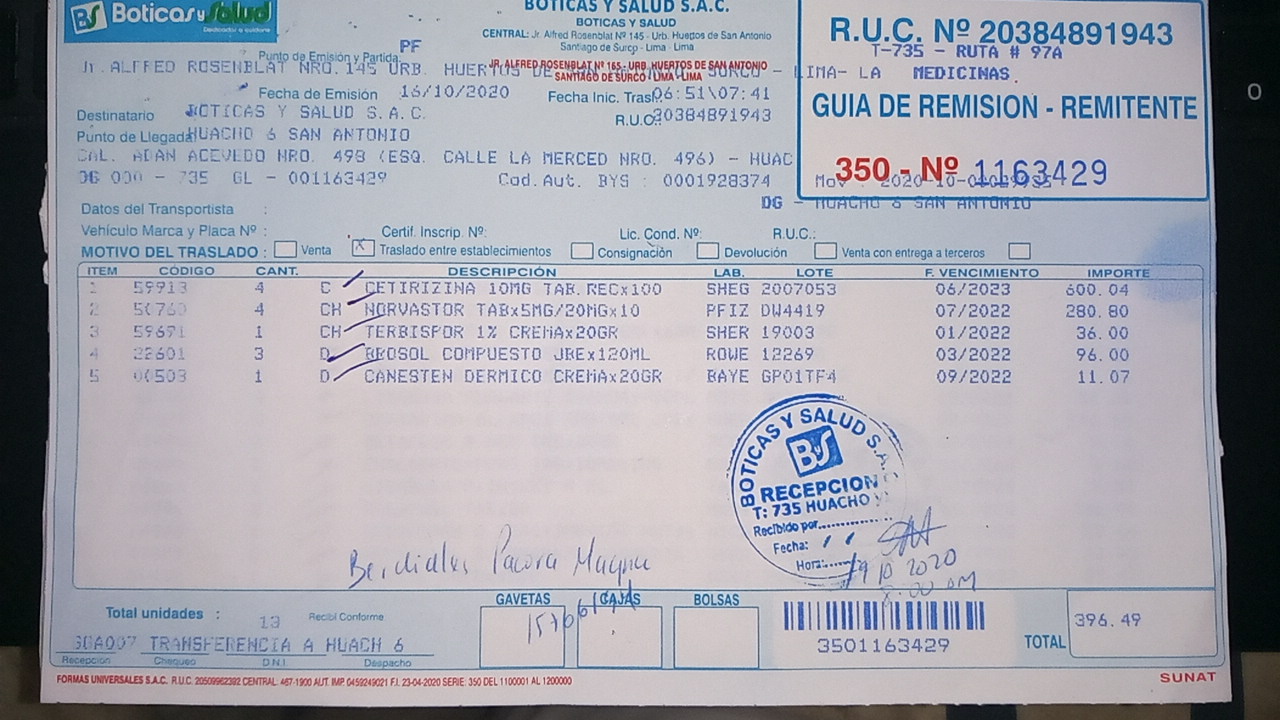 BS Boticas y Salud
Dedicados a cuidarte
BOTICAS Y SALUD S.A.C.
BOTICAS Y SALUD
CENTRAL: Jr. Alfred Rosenblat Nº 145 - Urb. Huertos de San Antonio
Santiago de Surco - Lima - Lima
JR. ALFRED ROSENBLAT Nº 165 - URB. HUERTOS DE SAN ANTONIO
SANTIAGO DE SURCO - LIMA - LIMA
R.U.C. Nº 20384891943
T-735 - RUTA # 97A
MEDICINAS.
GUIA DE REMISION - REMITENTE
350 - Nº 1163429
PF
Punto de Emisión y Partida:
Jr. ALFRED ROSENBLAT NRO. 145 URB. HUERTOS DE SURCO - LIMA- LA
Fecha de Emisión 16/10/2020 Fecha Inic. Trasl. 06:51\07:41
Destinatario BOTICAS Y SALUD S.A.C. R.U.C. 20384891943
Punto de Llegada HUACHO 6 SAN ANTONIO
CAL. ADAN ACEVEDO NRO. 498 (ESQ. CALLE LA MERCED NRO. 496) - HUAC
DG 000 - 735 GL - 001163429 Cod.Aut. BYS : 0001928374
DG - HUACHO 6 SAN ANTONIO
Datos del Transportista :
Vehículo Marca y Placa Nº : Certif. Inscrip. Nº: Lic. Cond. Nº: R.U.C.:
MOTIVO DEL TRASLADO : Venta X Traslado entre establecimientos Consignación Devolución Venta con entrega a terceros
ITEM CÓDIGO CANT. DESCRIPCIÓN LAB. LOTE F. VENCIMIENTO IMPORTE
1 59913 4 C CETIRIZINA 10MG TAB.RECx100 SHEG 2007053 06/2023 600.04
2 50760 4 CH NORVASTOR TABx5MG/20MGx10 PFIZ DW4419 07/2022 280.80
3 59671 1 CH TERBISFOR 1% CREMAx20GR SHER 19003 01/2022 36.00
4 22601 3 D BEOSOL COMPUESTO JBEx120ML ROWE 12269 03/2022 96.00
5 00503 1 D CANESTEN DERMICO CREMAx20GR BAYE GP01TF4 09/2022 11.07
BOTICAS Y SALUD S.A.C.
BS
RECEPCION
T: 735 HUACHO
Recibido por
Fecha:
Hora:
19 10 2020
Pacora
Total unidades : 13 Recibí Conforme
GAVETAS CAJAS BOLSAS
GUA007 TRANSFERENCIA A HUACH 6
Recepción Chequeo D.N.I. Despacho
3501163429
TOTAL 396.49
FORMAS UNIVERSALES S.A.C. R.U.C. 20509962392 CENTRAL: 467-1900 AUT. IMP. 0459249021 F.I. 23-04-2020 SERIE: 350 DEL 1100001 AL 1200000
SUNAT